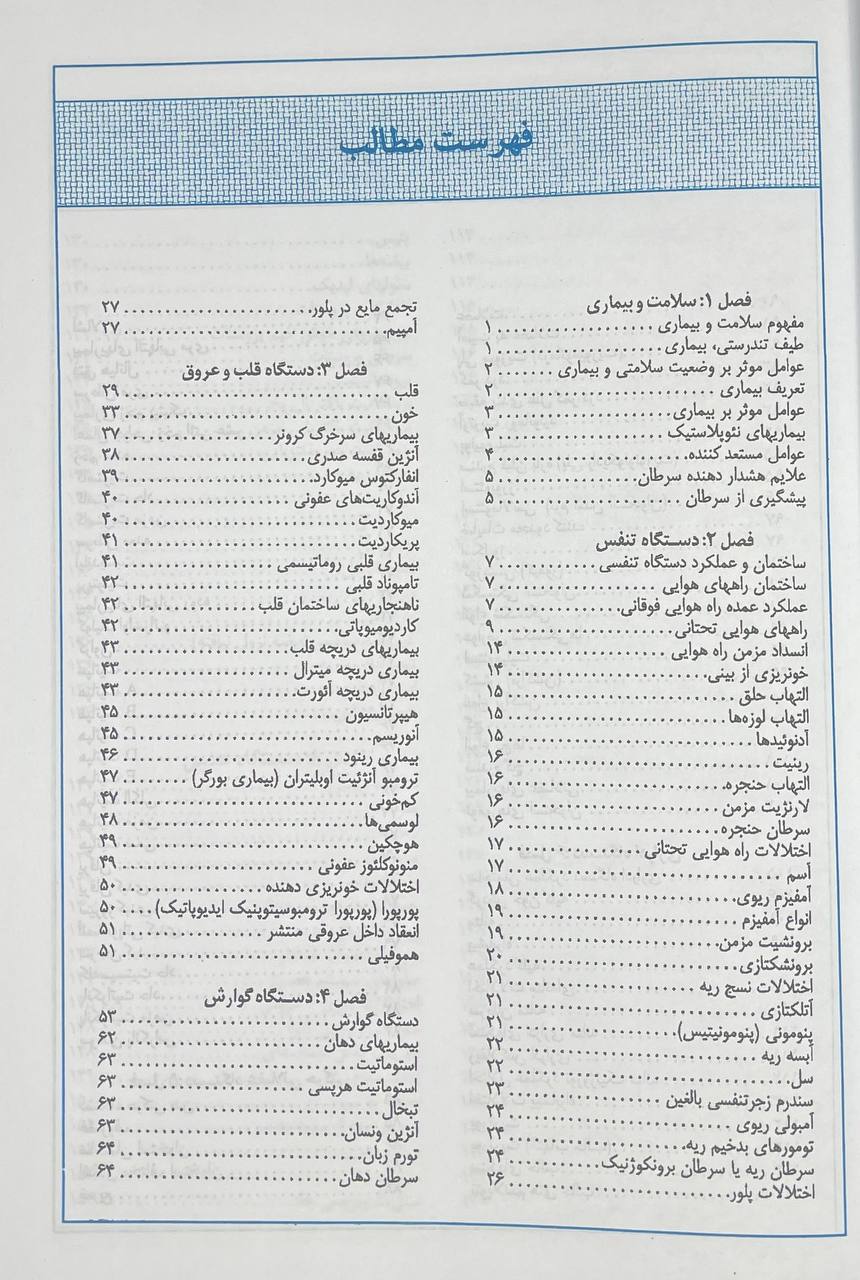 فهرست مطالب
فصل ۱: سلامت و بیماری
مفهوم سلامت و بیماری ................... ۱
طیف تندرستی، بیماری ................... ۱
عوامل موثر بر وضعیت سلامتی و بیماری ....... ۲
تعریف بیماری ......................... ۲
عوامل موثر بر بیماری ..................... ۳
بیماریهای نئوپلاستیک .................... ۳
عوامل مستعد کننده ...................... ۴
علایم هشدار دهنده سرطان ................. ۵
پیشگیری از سرطان ...................... ۵
فصل ۲: دستگاه تنفس
ساختمان و عملکرد دستگاه تنفسی ............ ۷
ساختمان راههای هوایی ................... ۷
عملکرد عمده راه هوایی فوقانی .............. ۷
راههای هوایی تحتانی ..................... ۹
انسداد مزمن راه هوایی ................... ۱۴
خونریزی از بینی ........................ ۱۴
التهاب حلق ........................... ۱۵
التهاب لوزه‌ها .......................... ۱۵
آدنوئیدها ............................. ۱۵
رینیت ................................ ۱۶
التهاب حنجره .......................... ۱۶
لارنژیت مزمن ......................... ۱۶
سرطان حنجره ......................... ۱۶
اختلالات راه هوایی تحتانی ................ ۱۷
آسم ................................. ۱۷
آمفیزم ریوی ........................... ۱۸
انواع آمفیزم ........................... ۱۹
برونشیت مزمن ......................... ۱۹
برونشکتازی ........................... ۲۰
اختلالات نسج ریه ...................... ۲۱
آتلکتازی ............................. ۲۱
پنومونی (پنومونیتیس) .................... ۲۱
آبسه ریه ............................. ۲۲
سل .................................. ۲۲
سندرم زجرتنفسی بالغین .................. ۲۳
آمبولی ریوی ........................... ۲۴
تومورهای بدخیم ریه ..................... ۲۴
سرطان ریه یا سرطان برونکوژنیک ............ ۲۴
اختلالات پلور .......................... ۲۶
تجمع مایع در پلور ....................... ۲۷
آمپیم ................................ ۲۷
فصل ۳: دستگاه قلب و عروق
قلب ................................. ۲۹
خون ................................. ۳۳
بیماریهای سرخرگ کرونر .................. ۳۷
آنژین قفسه صدری ....................... ۳۸
انفارکتوس میوکارد ....................... ۳۹
آندوکاریت‌های عفونی .................... ۴۰
میوکاردیت ............................ ۴۰
پریکاردیت ............................ ۴۱
بیماری قلبی روماتیسمی .................. ۴۱
تامپوناد قلبی .......................... ۴۲
ناهنجاریهای ساختمان قلب ................ ۴۲
کاردیومیوپاتی .......................... ۴۲
بیماریهای دریچه قلب .................... ۴۳
بیماری دریچه میترال .................... ۴۳
بیماری دریچه آئورت ..................... ۴۳
هیپرتانسیون .......................... ۴۵
آنوریسم .............................. ۴۵
بیماری رینود .......................... ۴۶
ترومبو آنژئیت اوبلیتران (بیماری بورگر) ........ ۴۷
کم‌خونی .............................. ۴۷
لوسمی‌ها ............................. ۴۸
هوچکین .............................. ۴۹
منونوکلئوز عفونی ....................... ۴۹
اختلالات خونریزی دهنده ................. ۵۰
پورپورا (پورپورا ترومبوسیتوپنیک ایدیوپاتیک) .... ۵۰
انعقاد داخل عروقی منتشر ................. ۵۱
هموفیلی .............................. ۵۱
فصل ۴: دستگاه گوارش
دستگاه گوارش ......................... ۵۳
بیماریهای دهان ........................ ۶۲
استوماتیت ............................ ۶۳
استوماتیت هرپسی ....................... ۶۳
تبخال ............................... ۶۳
آنژین ونسان ........................... ۶۳
تورم زبان ............................. ۶۴
سرطان دهان .......................... ۶۴